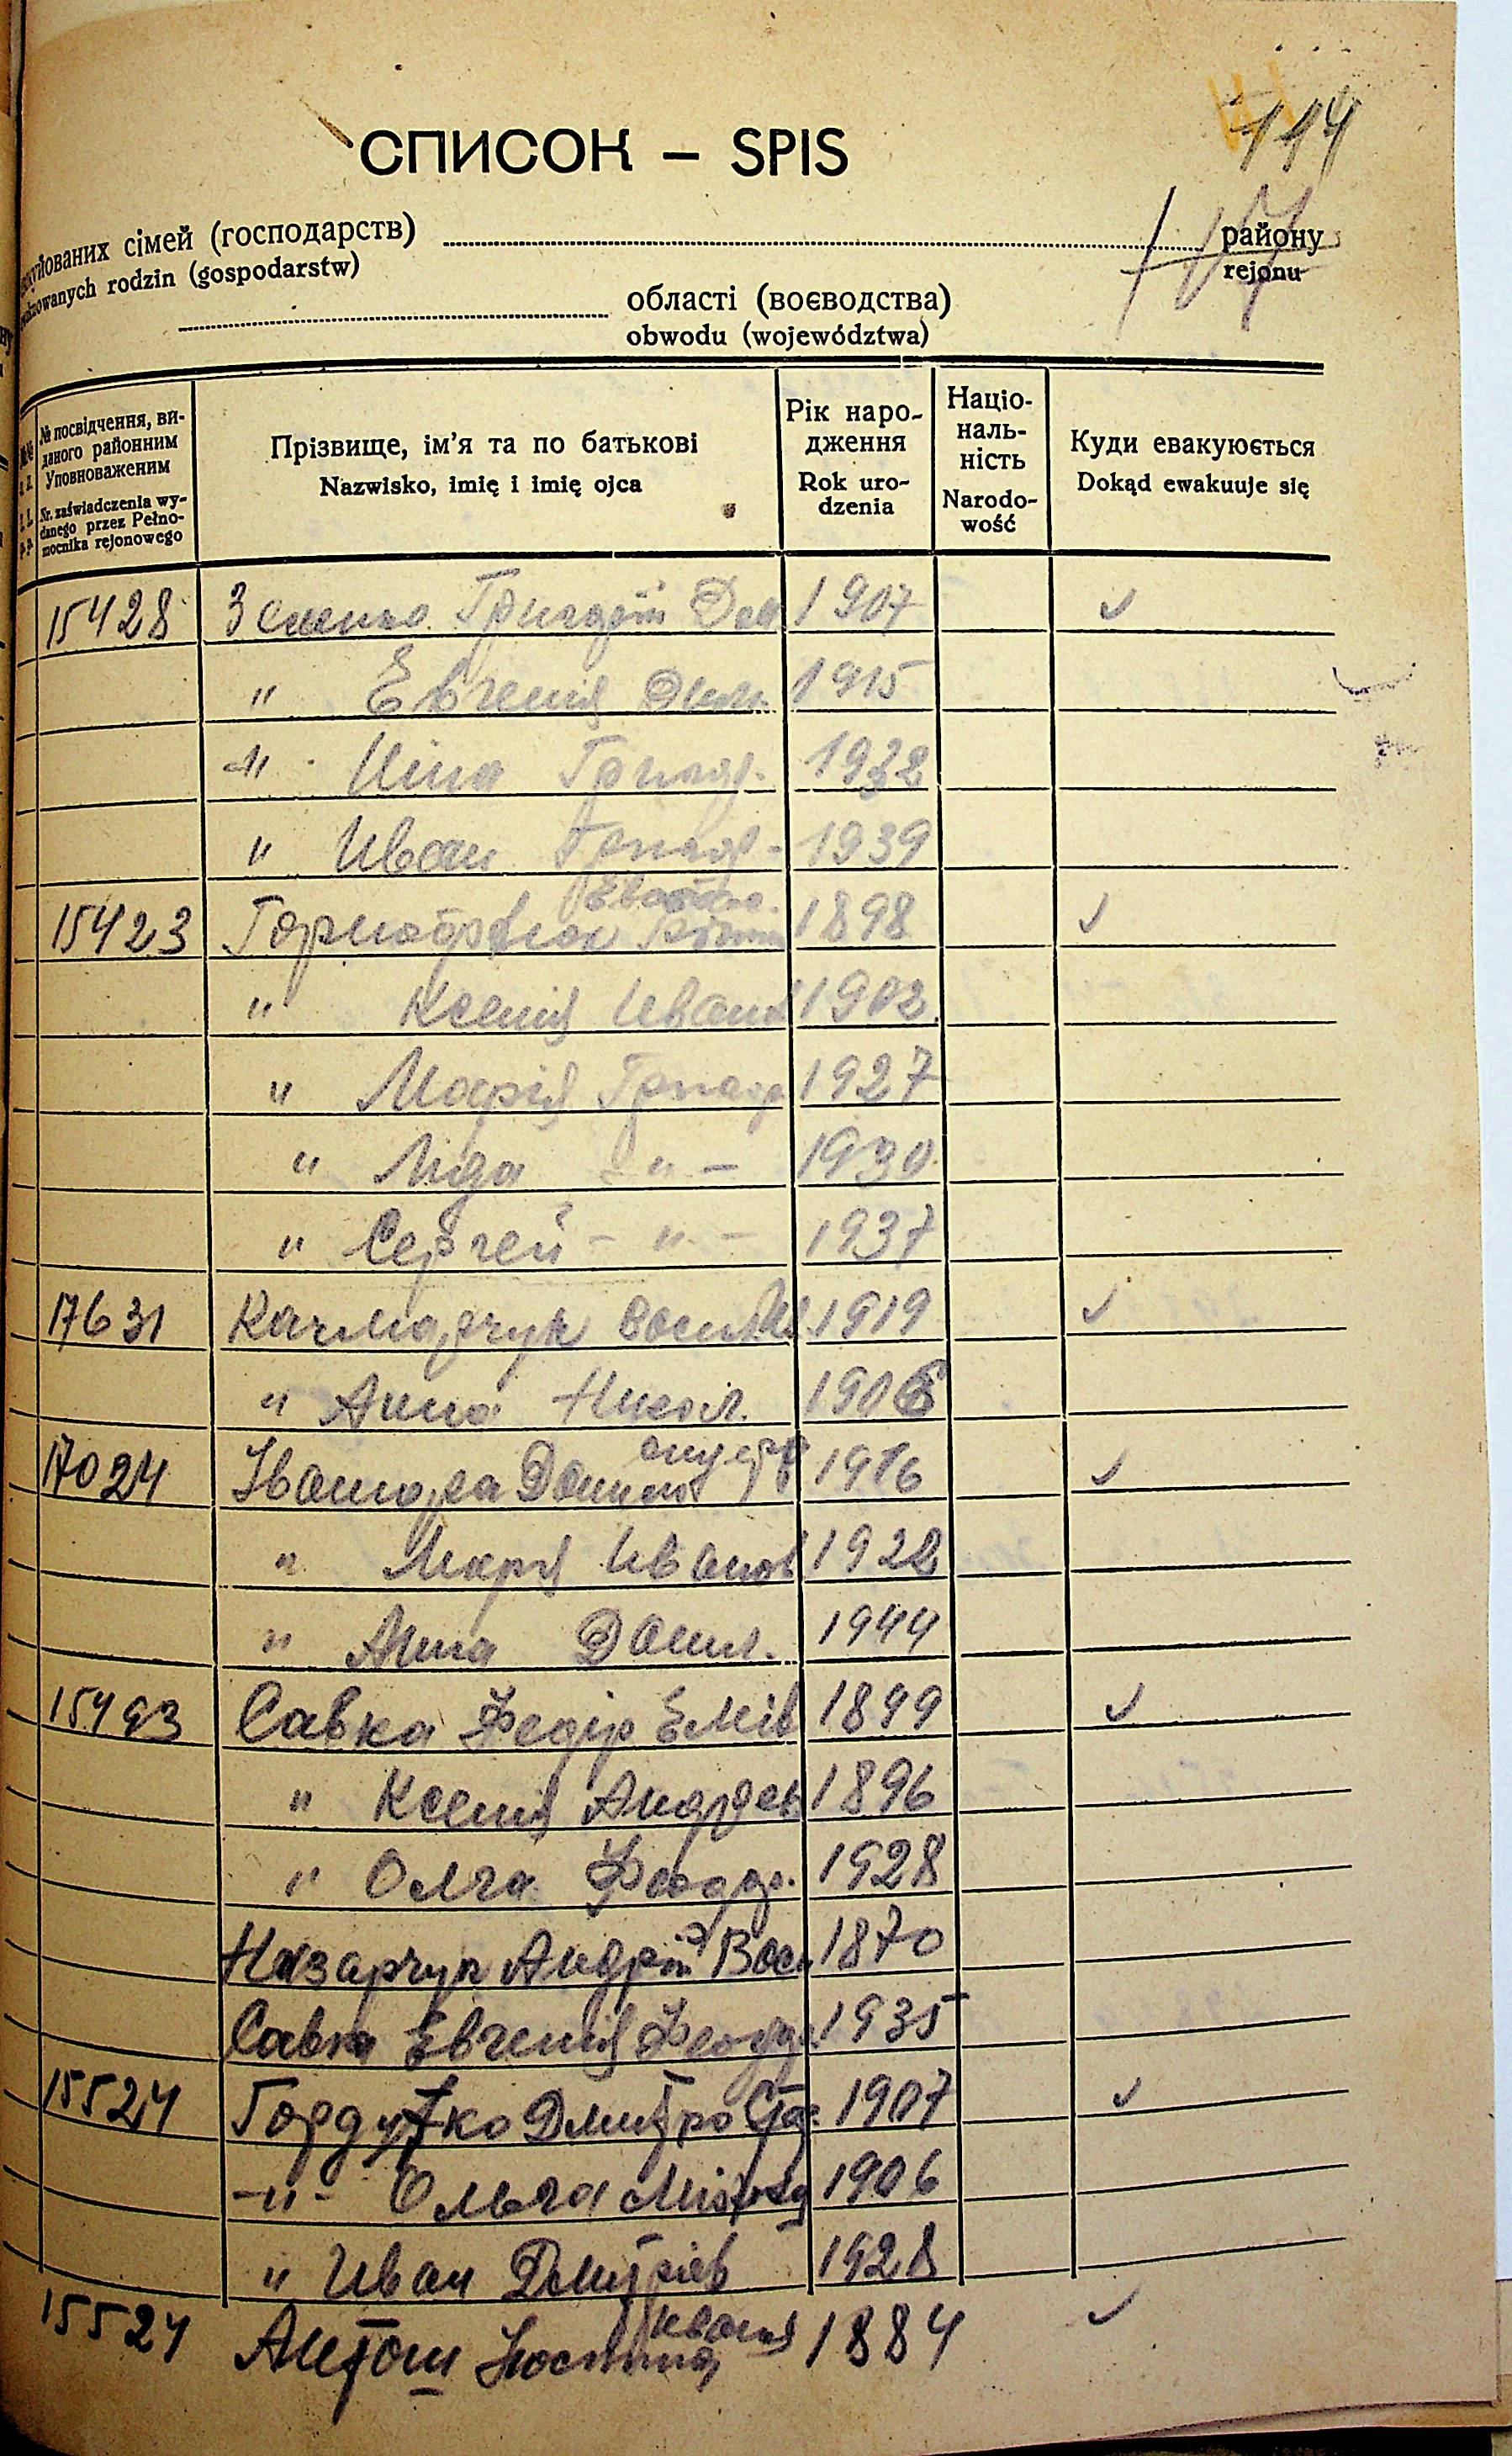 114
СПИСОК – SPIS
сімей (господарств) району
rodzin (gospodarstw) rejonu
області (воєводства)
obwodu (województwa)
№ посвідчення, ви-
даного районним
Уповноваженим
Nr. zaświadczenia wy-
danego przez Pełno-
mocnika rejonowego
Прізвище, ім'я та по батькові
Nazwisko, imię i imię ojca
Рік наро-
дження
Rok uro-
dzenia
Націо-
наль-
ність
Narodo-
wość
Куди евакуюється
Dokąd ewakuuje się
15428 Григорій 1907 ✓
" Евгенія 1915
" Ніна Григор. 1932
" Иван Григор- 1939
15423 1898 ✓
" Ксенія Иван 1902
" Марія Григор 1927
" Ліда - " - 1930
" Сергей - " - 1937
17631 Качмарчук Васил 1919 ✓
" Анна 1906
17024 Данило 1916 ✓
" Марія Иванов 1922
" Анна Данил. 1944
15493 Савка Федір 1899 ✓
" Ксенія Андреев 1896
" Олга Феодор. 1928
Назарчук Андрій Вас 1870
Савка Евгенія Феодор. 1935
15524 Дмитро 1907 ✓
-"- Ольга 1906
" Иван Дмитриев 1928
15524 Антош 1884 ✓